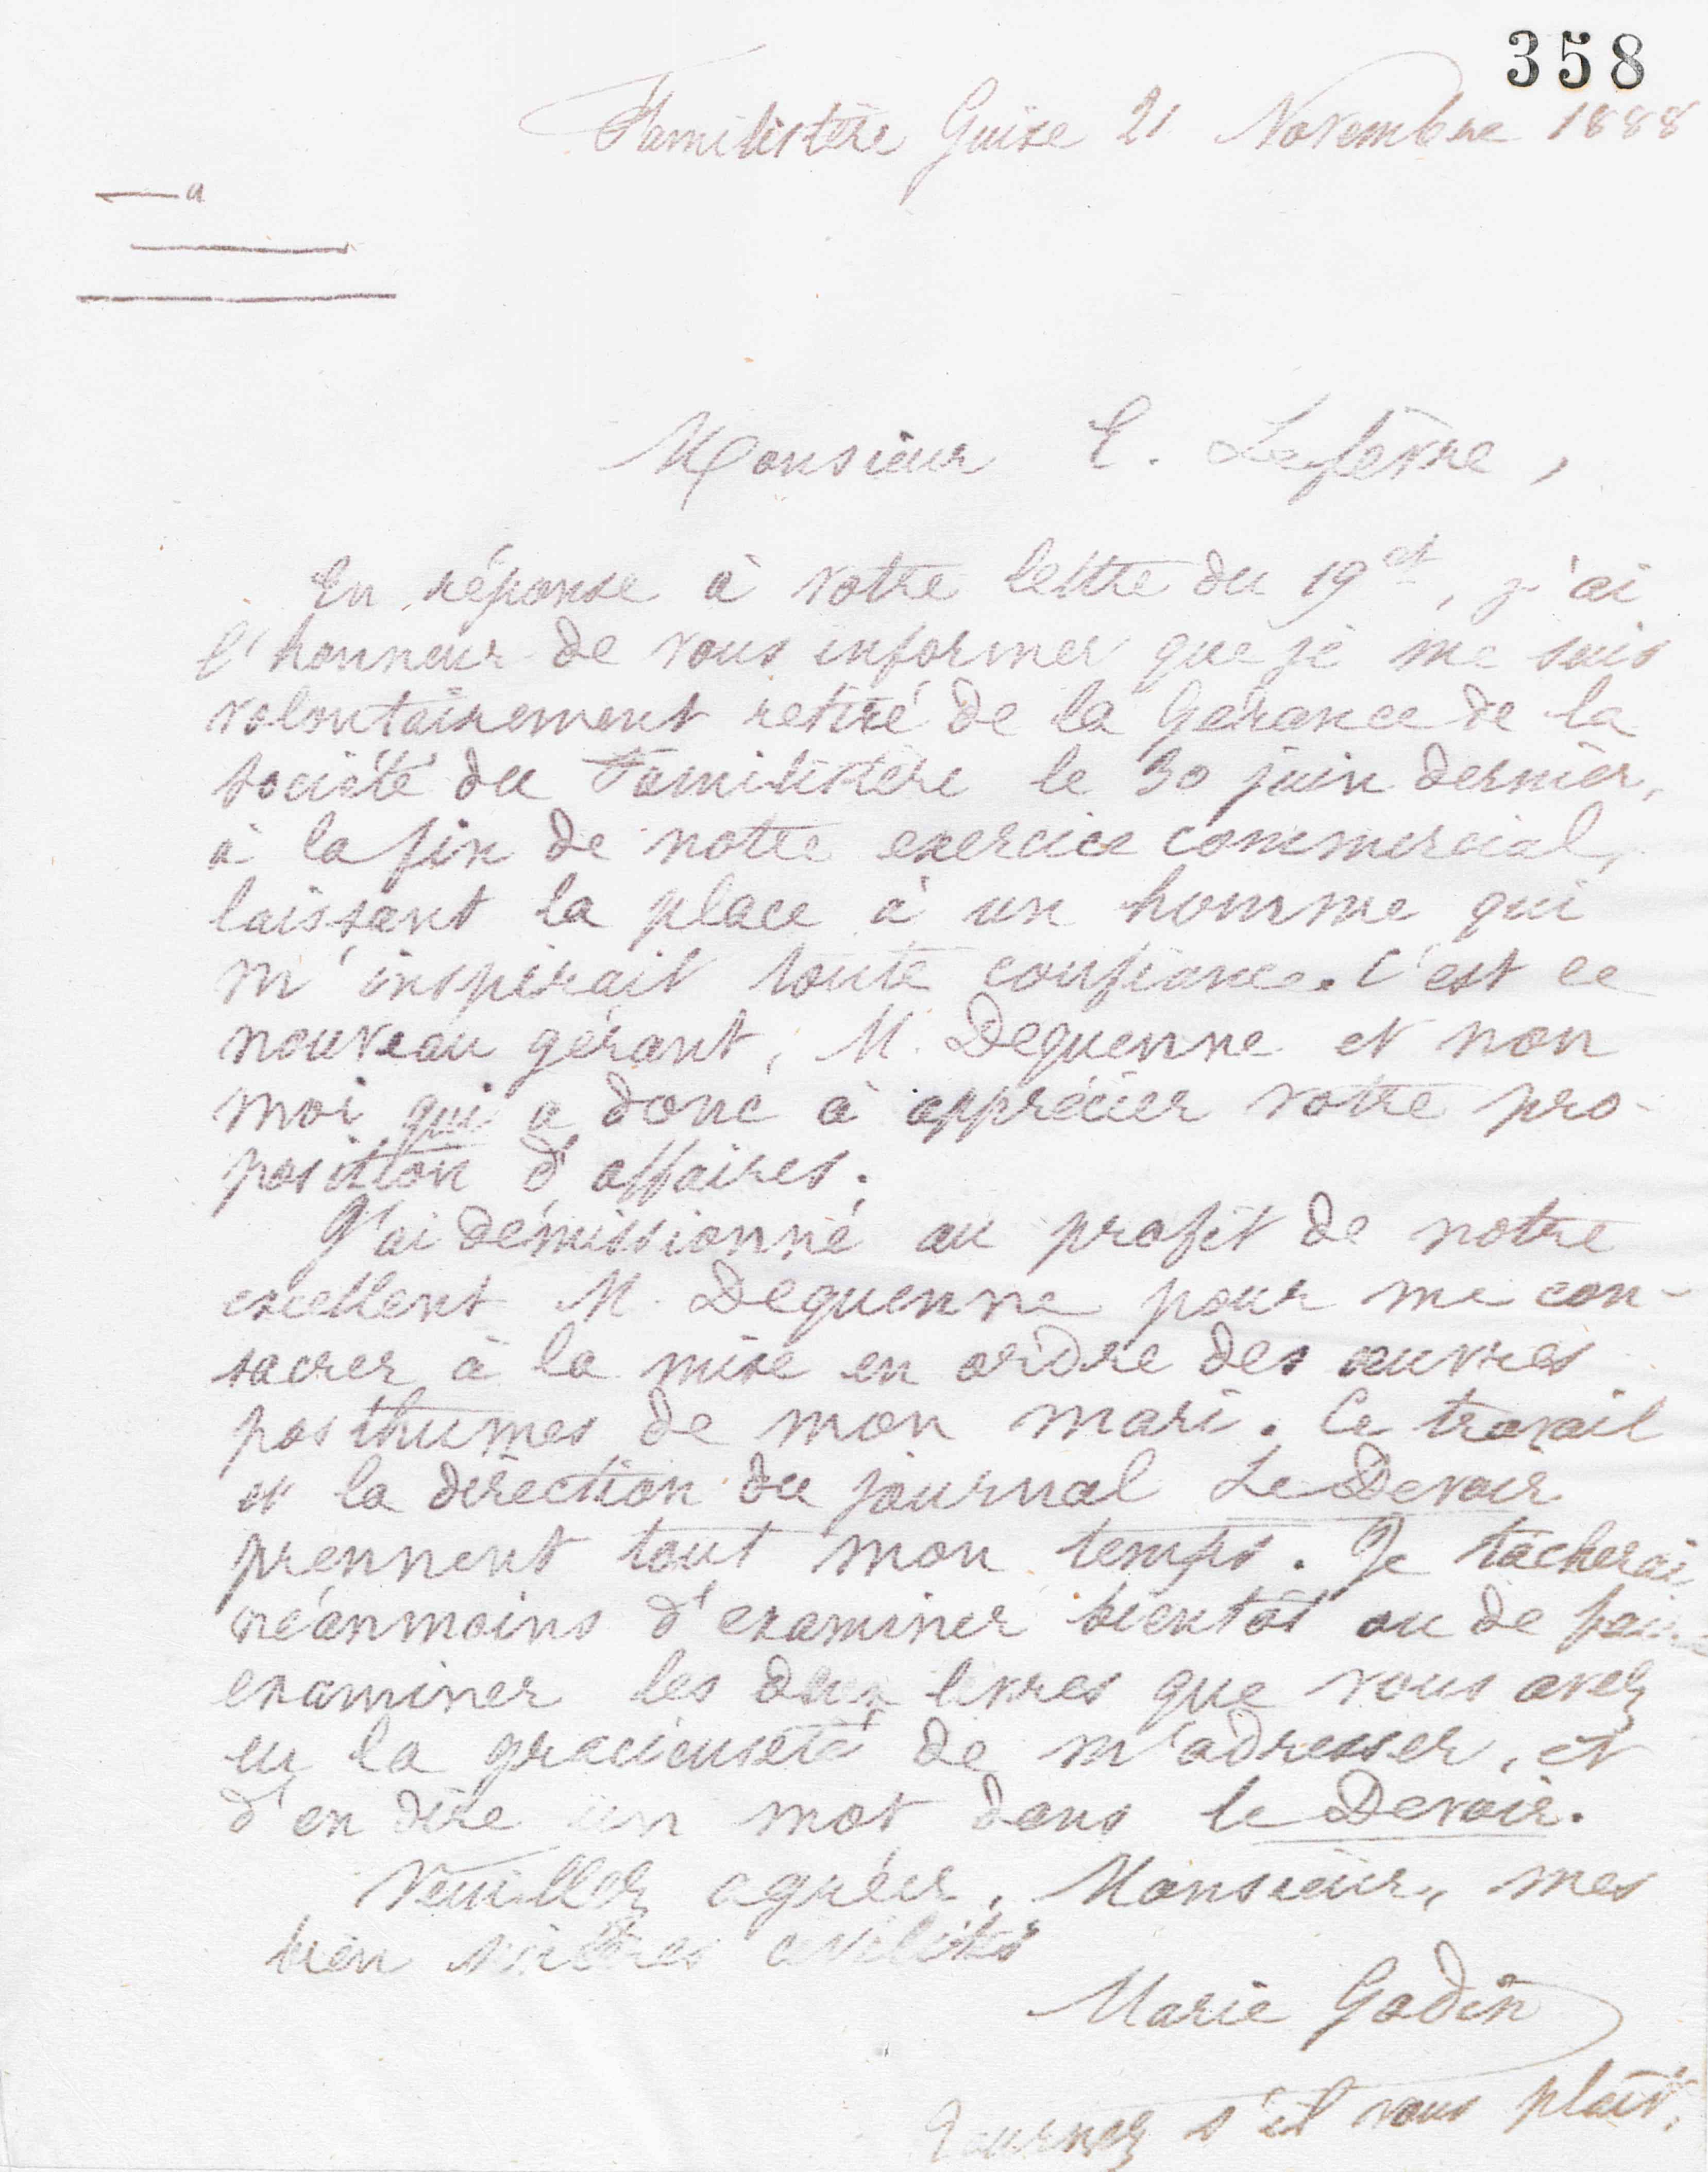 358
Familistère Guise 21 Novembre 1888
a
Monsieur E. Lefèvre,
En réponse à votre lettre du 19 ct, j'ai
l'honneur de vous informer que je me suis
volontairement retiré de la Gérance de la
société du Familistère le 30 juin dernier,
à la fin de notre exercice commercial,
laissant la place à un homme qui
m'inspirait toute confiance. C'est ce
nouveau gérant, M. Dequenne et non
moi qui a donc à apprécier votre pro-
position d'affaires.
J'ai démissionné au profit de notre
excellent M. Dequenne pour me con-
sacrer à la mise en ordre des œuvres
posthumes de mon mari. Ce travail
et la direction du journal Le Devoir
prennent tout mon temps. Je tâcherai
néanmoins d'examiner bientôt ou de faire
examiner les deux livres que vous avez
eu la gracieuseté de m'adresser, et
d'en dire un mot dans le Devoir.
Veuillez agréer, Monsieur, mes
bien sincères civilités
Marie Godin
Tournez s'il vous plaît.